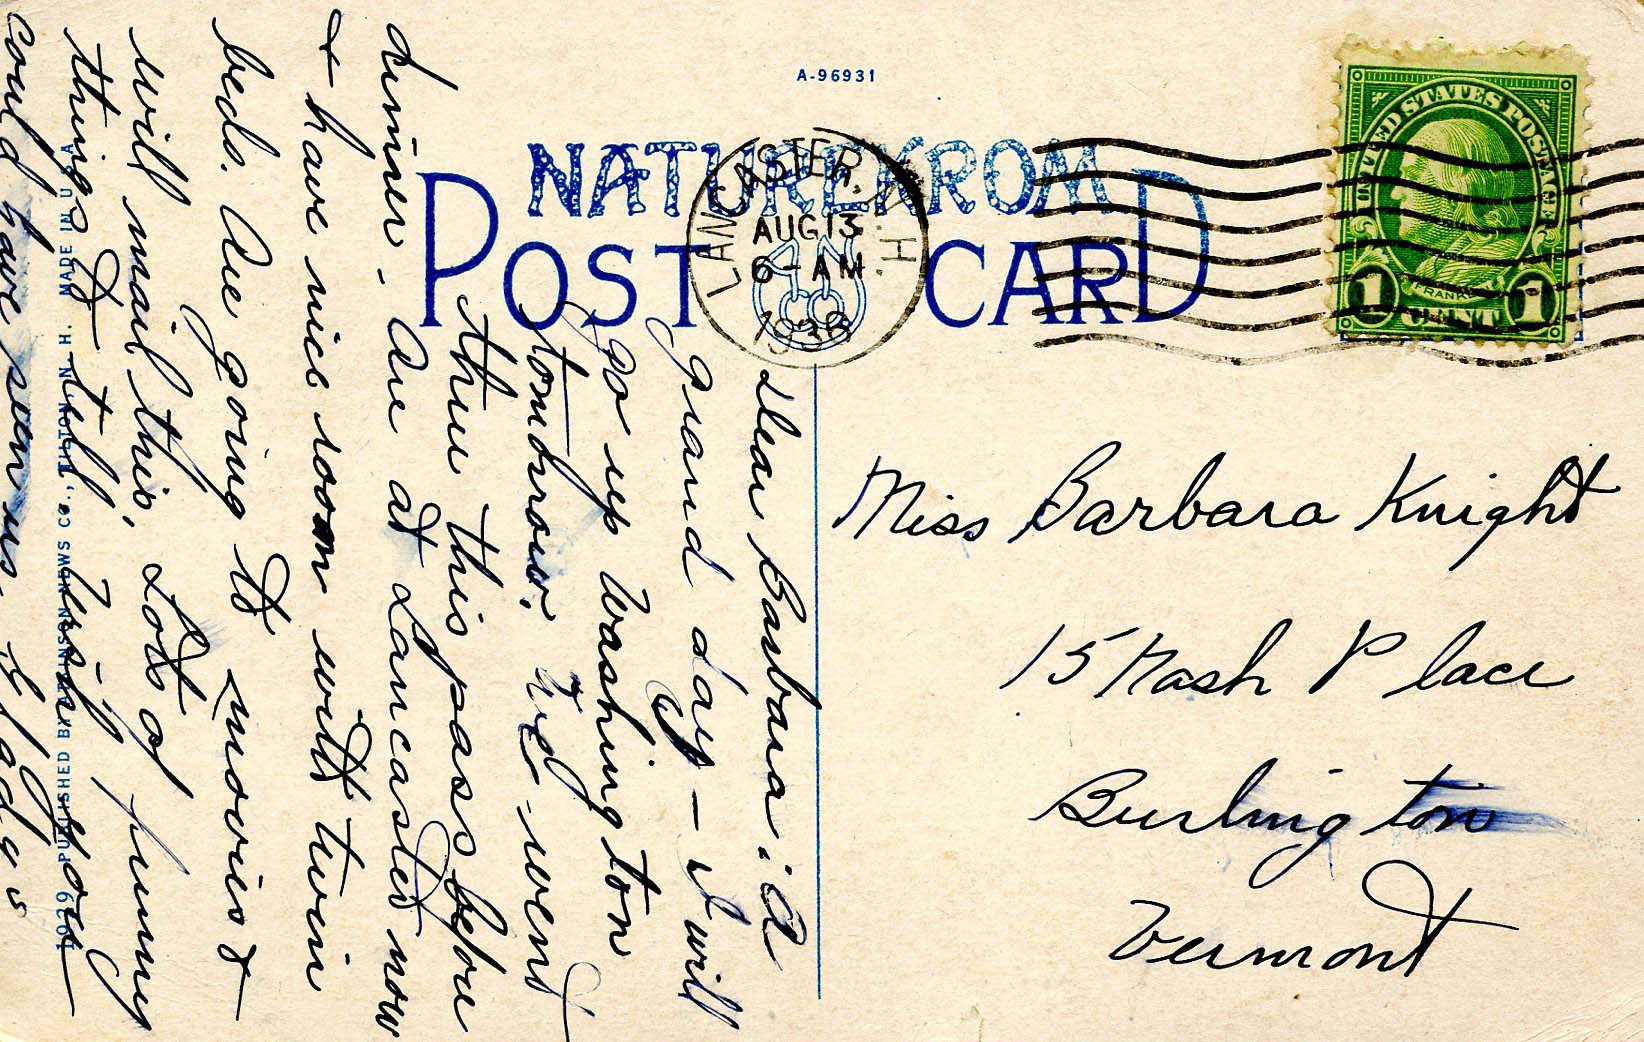 A-96931
NATUREKROM
POST CARD
LANCASTER, N.H.
AUG 13
6-AM
1936
UNITED STATES POSTAGE
FRANKLIN
1 CENT 1
Miss Barbara Knight
15 Nash Place
Burlington
Vermont
Dear Barbara: A
grand day - I will
go up Washington
tomorrow. We went
thru this pass before
dinner. Are at Lancaster now
& have nice room with twin
beds. Are going to movies &
will mail this. Lots of funny
things to tell. Wish you
could have seen us. Gladys
1929 PUBLISHED BY ATKINSON NEWS CO., TILTON, N. H. MADE IN U S A